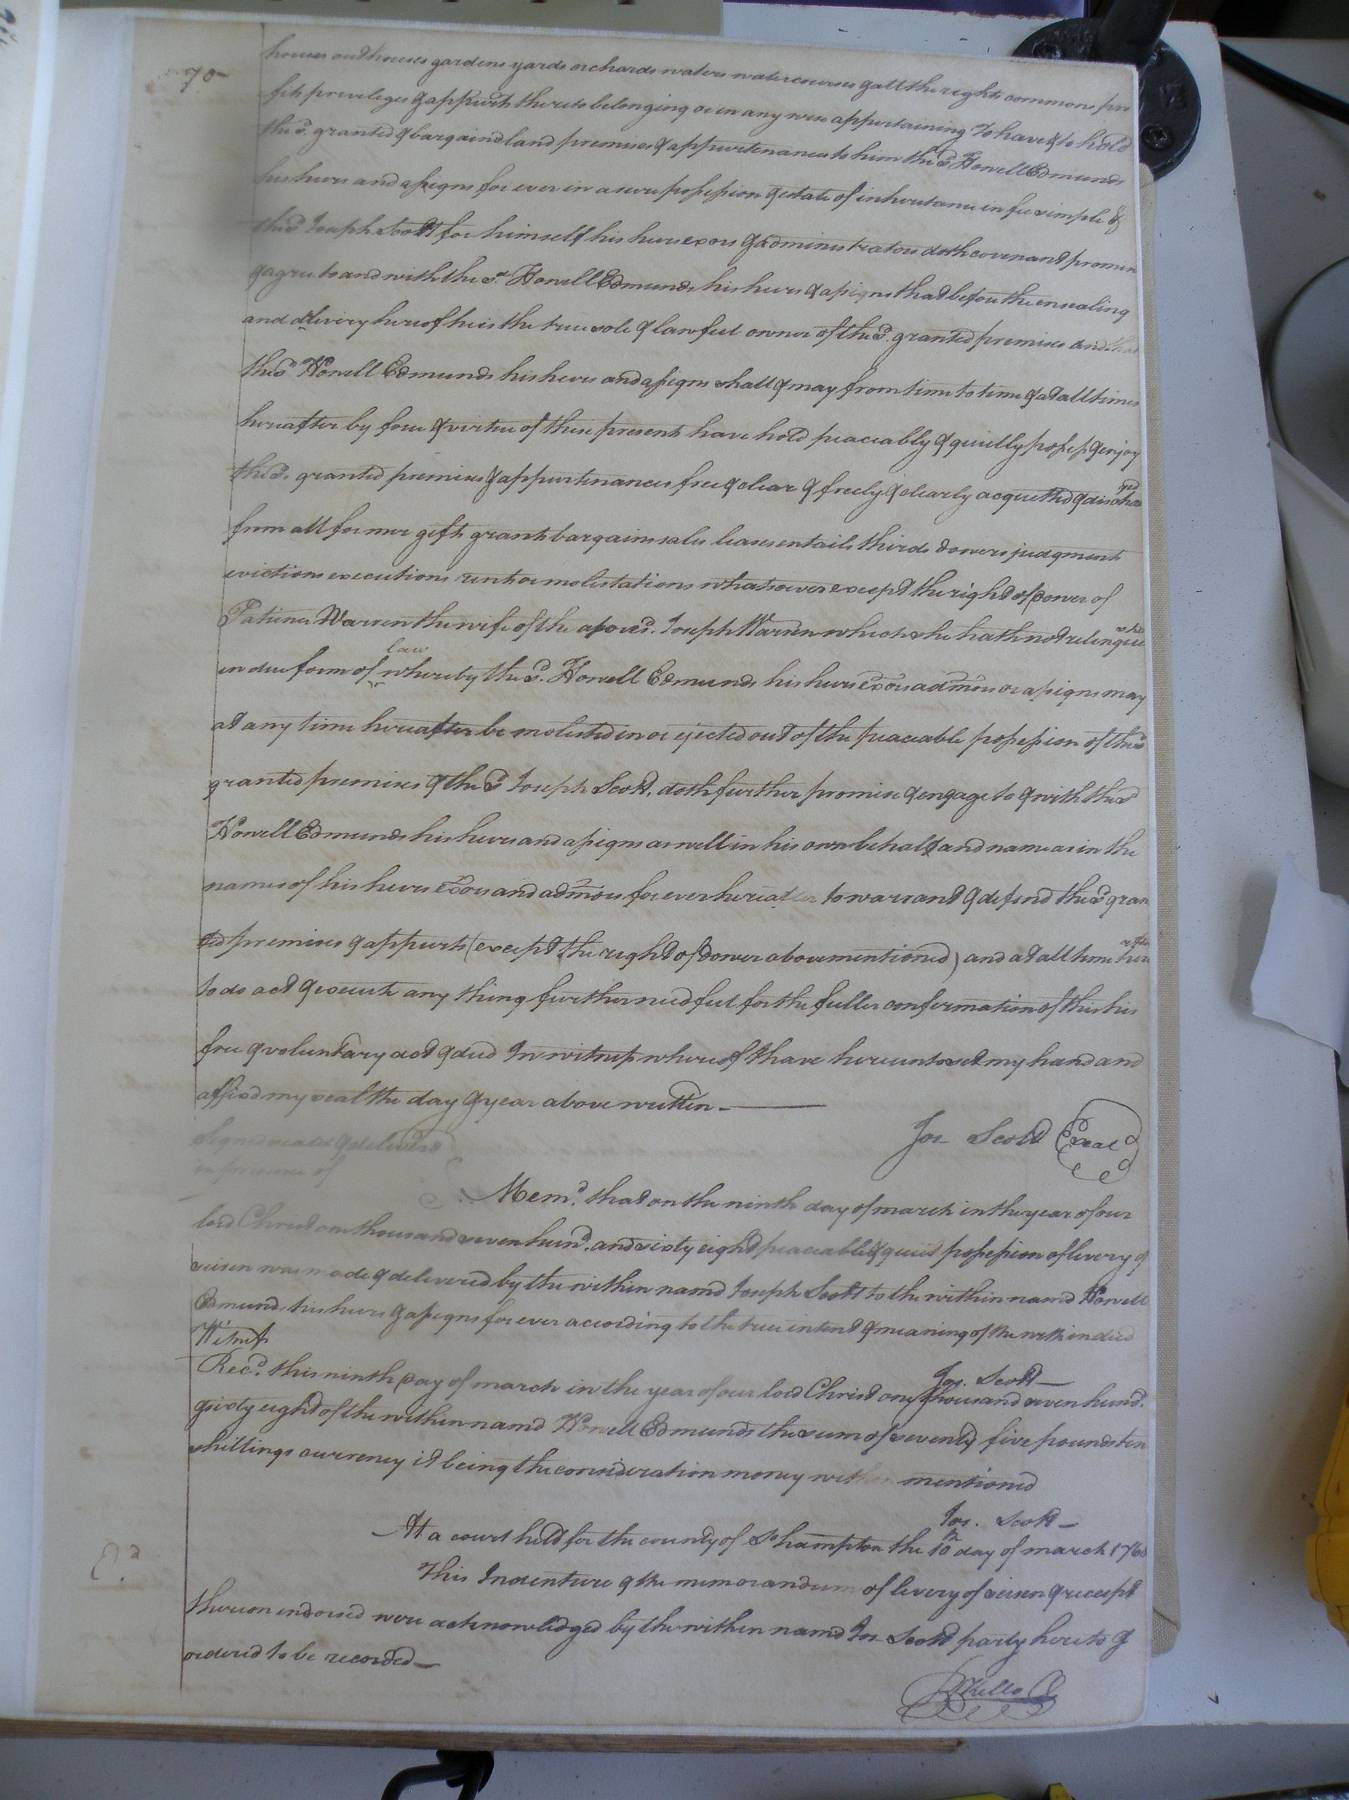 70
houses outhouses gardens yards orchards waters watercourses & all the rights commons pro
fits priveleges & appurts thereto belonging or in any wise appertaining To have & to hold
the sd. granted & bargaind land premises & appurtenances to him the sd Howell Edmunds
his heirs and assigns for ever in a sure possession & estate of inheritance in fee simple &
the sd Joseph Scott for himself his heirs exors & administrators doth covenant promise
& agree to and with the sd Howell Edmunds his heirs & assigns that before the ensealing
and delivery hereof he is the true sole & lawfull owner of the sd. granted premises and that
the sd Howell Edmunds his heirs and assigns shall & may from time to time & at all times
hereafter by force & virtue of these present have hold peaceably & quietly possess & enjoy
the sd. granted premises & appurtenances free & clear & freely & clearly acquitted & dischar
ged
from all former gifts grants bargains sales leases entails thirds dowers judgment
evictions executions rents or molestations whatsoever except the right of Dower of
Patience Warren the wife of the aforesd. Joseph Warren which she hath not relinqui
shd
in due form of law whereby the sd. Howell Edmunds his heirs exors admors or assigns may
at any time hereafter be molested in or ejected out of the peaceable possession of the sd
granted premises & the sd Joseph Scott, doth further promise & engage to & with the sd
Howell Edmunds his heirs and assigns as well in his own behalf and name as in the
names of his heirs exors and admors for ever hereafter to warrant & defend the sd gran
ted premises & appurts (except the right of Dower above mentioned) and at all time here
after
to do act & execute any thing further needful for the fuller confirmation of this his
free & voluntary act & deed In witness whereof I have hereunto set my hand and
affixd my seal the day & year above written —
Jos Scott (Seal)
Signd seald & deliverd
in presence of
Memd. that on the ninth day of march in the year of our
lord Christ one thousand seven hund. and sixty eight peaceable & quiet possession of livery &
seisen was made & delivered by the within namd Joseph Scott to the within namd Howell
Edmunds his heirs & assigns for ever according to the true intent & meaning of the within deed
Witness
Jos. Scott —
Recd. this ninth Day of march in the year of our lord Christ one thousand seven hund.
& sixty eight of the within namd Howell Edmunds the sum of seventy five pounds ten
shillings currency it being the consideration money within mentioned
Jos. Scott —
At a court held for the county of Sohampton the 10th day of march 1768
This Indenture & the memorandum of livery of seisen & receipt
thereon endorsed were acknowledged by the within namd Jos Scott party hereto &
ordered to be recorded —
Kello
Ed.